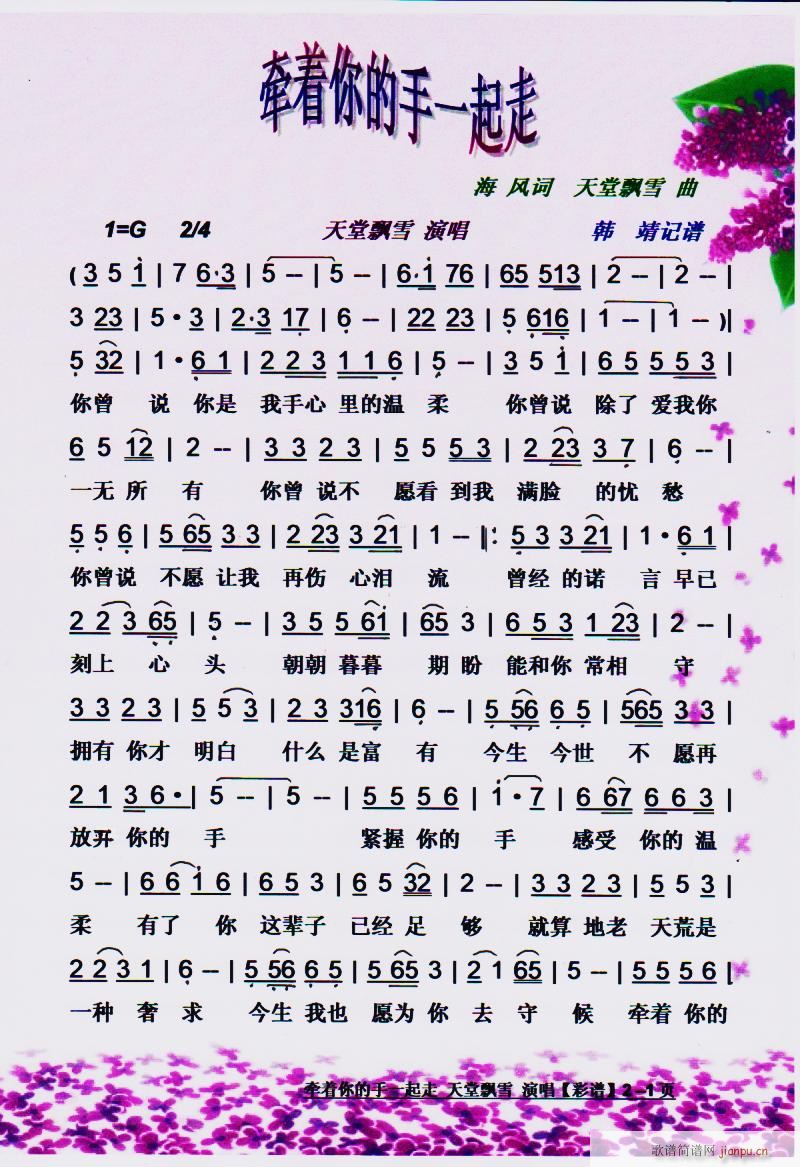 牵着你的手一起走
海 风词 天堂飘雪 曲
1=G 2/4 天堂飘雪 演唱 韩 靖记谱
( 3 5 1 | 7 6·3 | 5 -- | 5 -- | 6·1 76 | 65 513 | 2 -- | 2 -- |
3 23 | 5·3 | 2·3 17 | 6 -- | 22 23 | 5 616 | 1 -- | 1 -- )|
5 32 | 1·6 1 | 2 2 3 1 1 6 | 5 -- | 3 5 1 | 6 5 5 5 3 |
你曾 说 你是 我手心 里的温 柔 你曾说 除了 爱我你
6 5 12 | 2 -- | 3 3 2 3 | 5 5 5 3 | 2 23 3 7 | 6 -- |
一无 所 有 你曾 说不 愿看 到我 满脸 的忧 愁
5 5 6 | 5 65 3 3 | 2 23 3 21 | 1 -- |: 5 3 3 21 | 1·6 1 |
你曾说 不愿 让我 再伤 心泪 流 曾经 的诺 言 早已
2 2 3 65 | 5 -- | 3 5 5 61 | 65 3 | 6 5 3 1 23 | 2 -- |
刻上 心 头 朝朝 暮暮 期 盼 能和你 常相 守
3 3 2 3 | 5 5 3 | 2 2 316 | 6 -- | 5 56 6 5 | 565 3 3 |
拥有 你才 明白 什么 是富 有 今生 今世 不 愿再
2 1 3 6· | 5 -- | 5 -- | 5 5 5 6 | 1·7 | 6 67 6 6 3 |
放开 你的 手 紧握 你的 手 感受 你的 温
5 -- | 6 6 1 6 | 6 5 3 | 5 5 6 32 | 2 -- | 3 3 2 3 | 5 5 3 |
柔 有了 你 这辈子 已经 足 够 就算 地老 天荒是
2 2 3 1 | 6 -- | 5 56 6 5 | 5 65 3 | 2 1 65 | 5 -- | 5 5 5 6 |
一种 奢 求 今生 我也 愿为 你 去 守 候 牵着 你的
牵着你的手一起走 天堂飘雪 演唱【彩谱】2-1页
歌谱简谱网
jianpu.cn